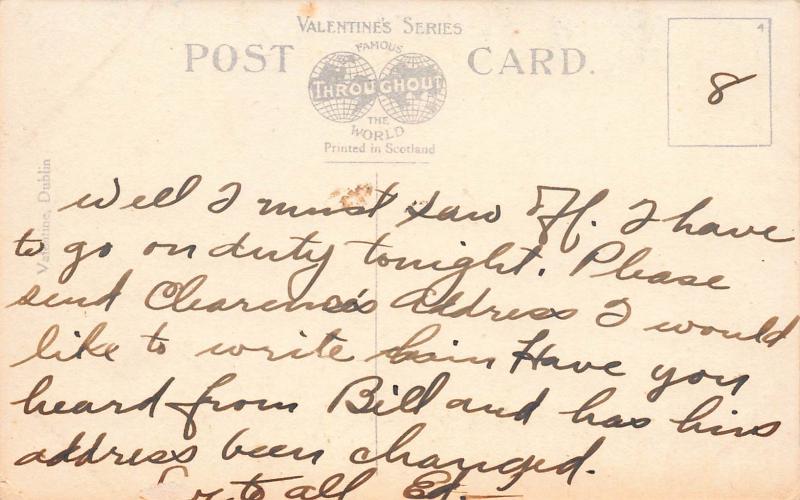 VALENTINE'S SERIES
POST CARD.
FAMOUS
THROUGHOUT
THE
WORLD
Printed in Scotland
4
8
Valentine, Dublin
Well I must saw Off. I have
to go on duty tonight. Please
send Clarence's address I would
like to write him Have you
heard from Bill and has his
address been changed.
to all Ed.